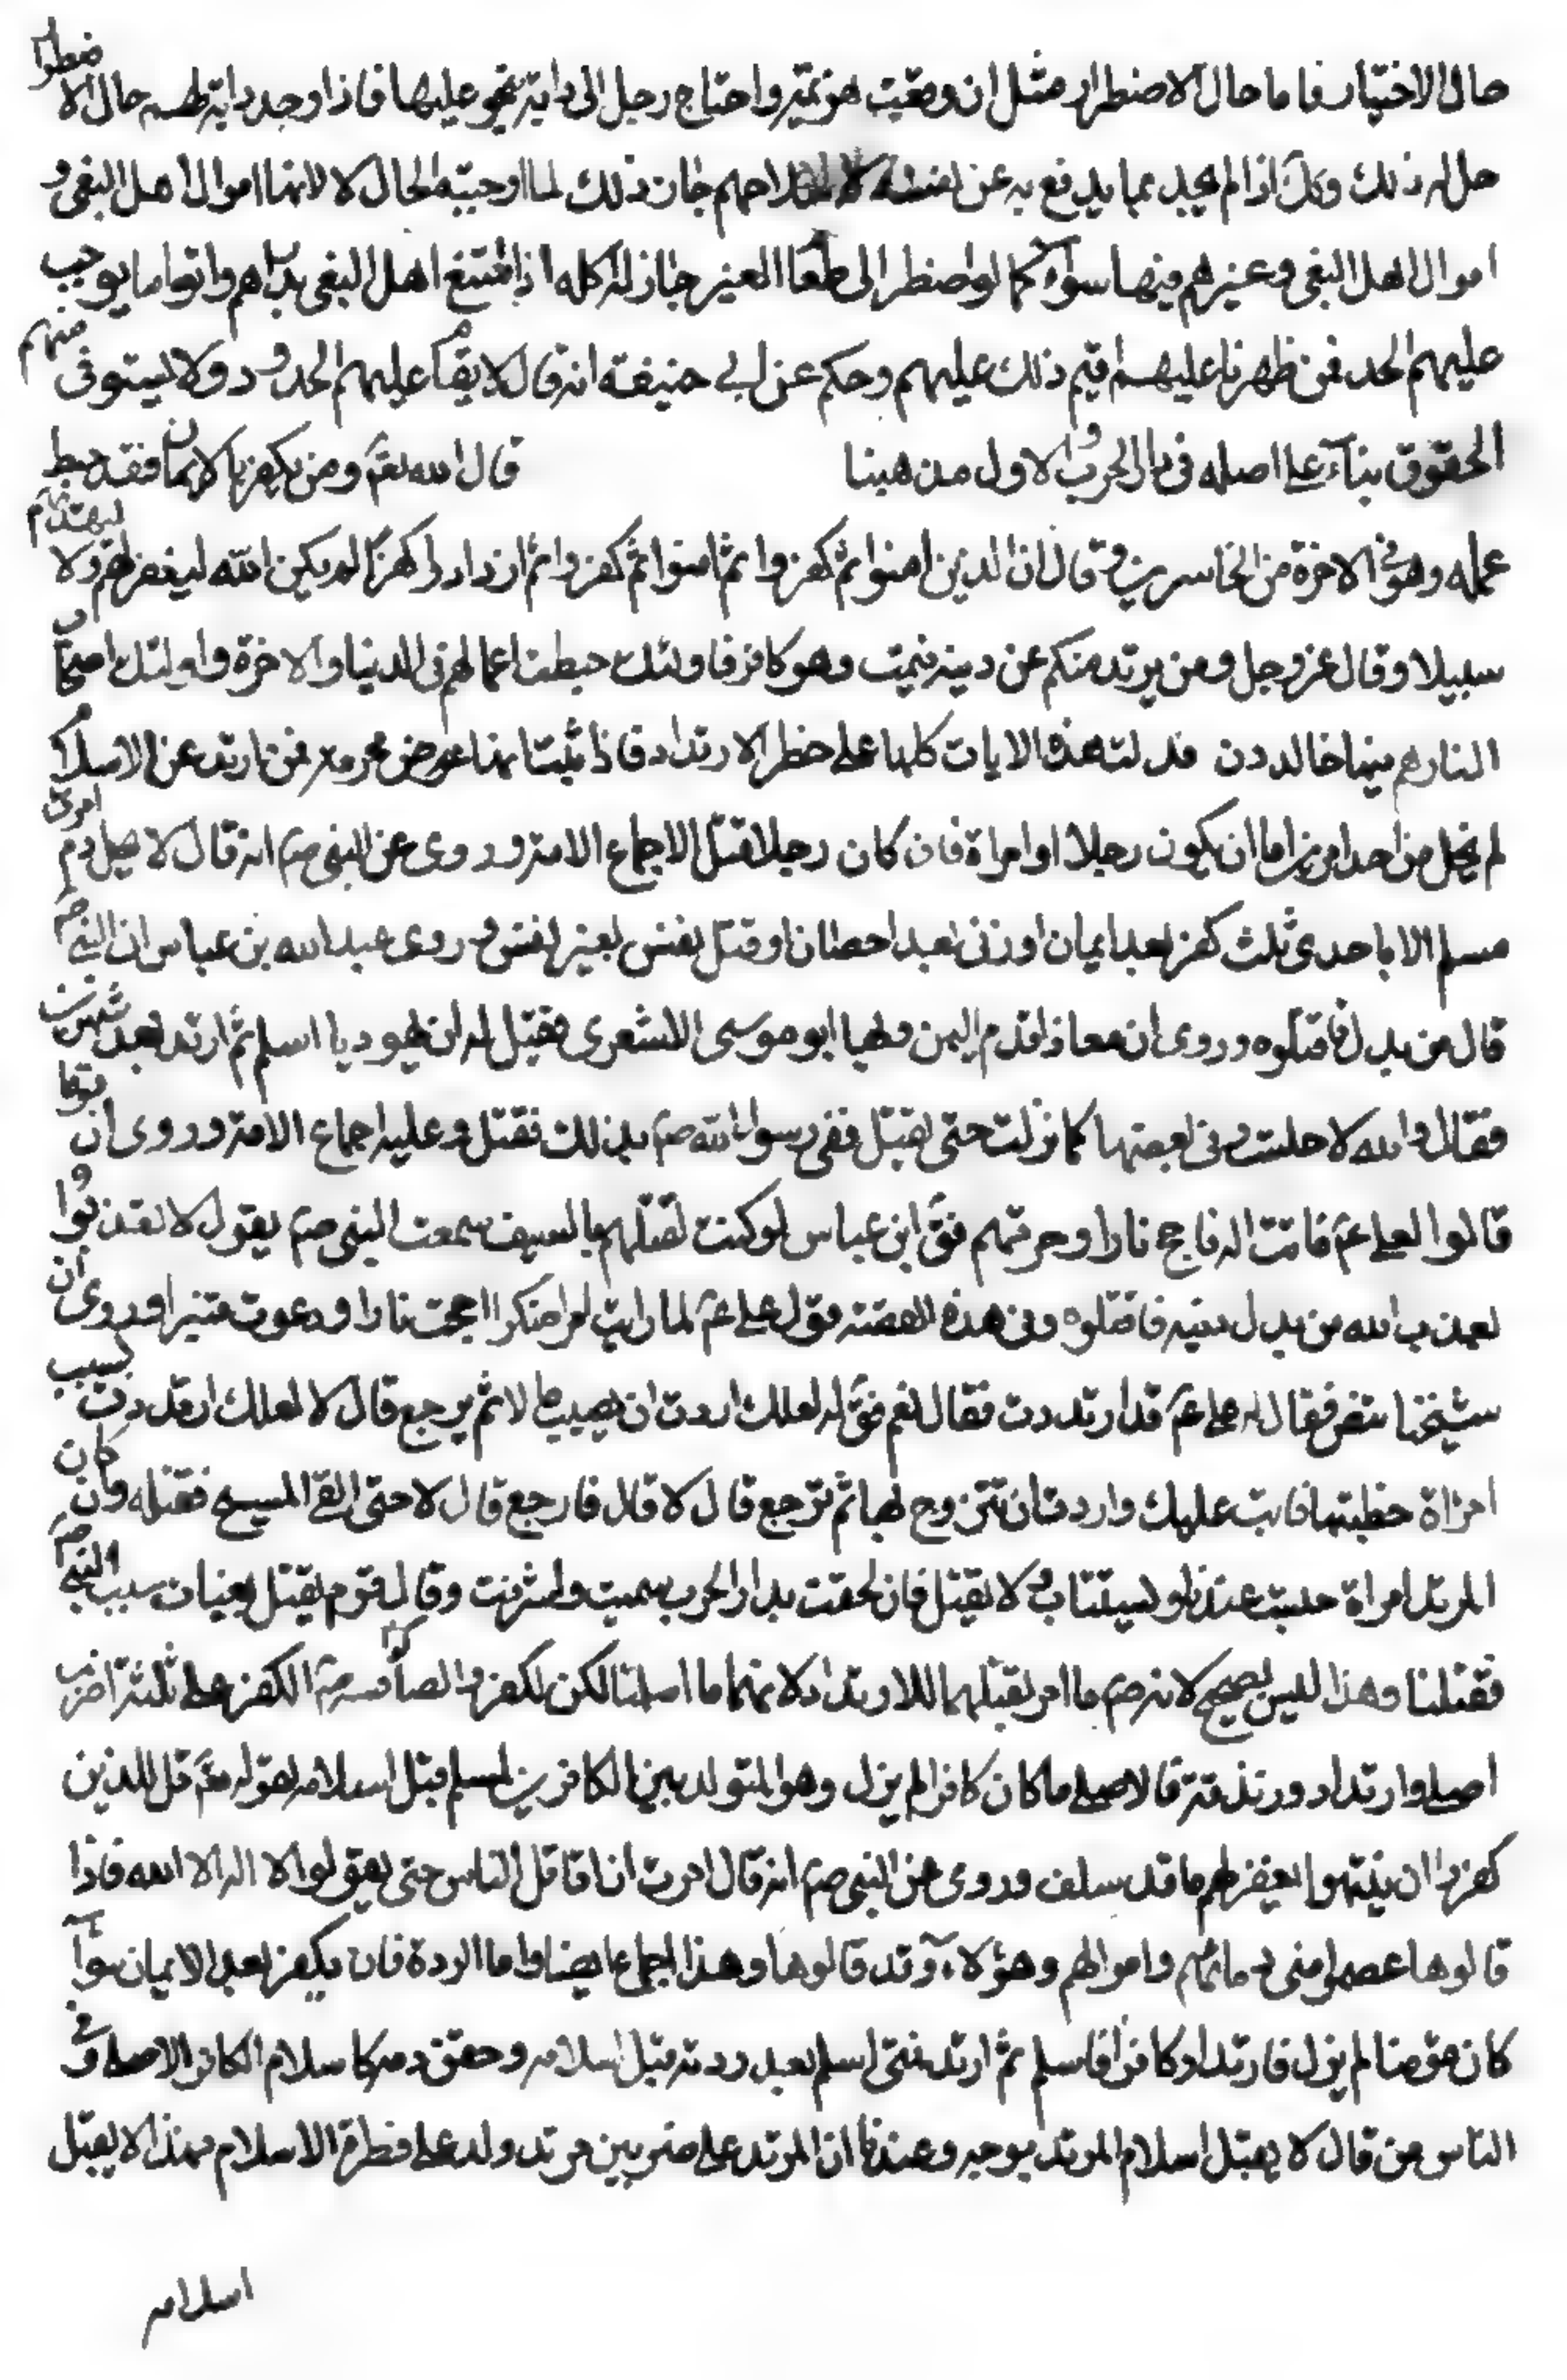 حال الاختيار فاما حال الاضطرار مثل ان وقعت هزيمة واحتاج رجل الى دابة ينجو عليها فاذا وجد دابة لهم حال الاضطرار
حل له ذلك وكك اذا لم يجد بما يدفع به عن نفسه الا سلاحهم جاز ذلك لما اوجبته الحال لا لانها اموال اهل البغى و
اموال اهل البغى وغيرهم فيها سواء كما لو اضطر الى طعام الغير جاز له اكله اذا امتنع اهل البغى بدارهم واتوا ما يوجب
عليهم الحد فمن ظهرنا عليهم اقيم ذلك عليهم وحكى عن ابى حنيفة انه قال لا يقام عليهم الحدود ولا يستوفى منهم
الحقوق بناء على اصله فى دار الحرب الاول مذهبنا قال الله تع ومن يكفر بالايمان فقد حبط
عمله وهو فى الاخرة من الخاسرين وقال ان الذين امنوا ثم كفروا ثم امنوا ثم كفروا ثم ازدادوا كفرا لم يكن الله ليغفر لهم ولا ليهديهم
سبيلا وقال عز وجل ومن يرتدد منكم عن دينه فيمت وهو كافر فاولئك حبطت اعمالهم فى الدنيا والاخرة واولئك اصحاب
النار هم فيها خالدون فدلت هذه الايات كلها على حظر الارتداد فاذا ثبت انها محرمة فمن ارتد عن الاسلام
لم يخل من احد امرين اما ان يكون رجلا او امراة فان كان رجلا قتل لاجماع الامة وروى عن النبى ص انه قال لا يحل دم امرئ
مسلم الا باحدى ثلث كفر بعد ايمان او زنى بعد احصان او قتل نفس بغير نفس وروى عبد الله بن عباس ان النبى ص
قال من بدل فاقتلوه وروى ان معاذا قدم اليمن وبها ابو موسى الاشعرى فقيل له ان يهوديا اسلم ثم ارتد بعد شهرين
فقال والله لا جلست حتى يقتل قضى رسول الله ص بذلك فقتل وعليه اجماع الامة وروى ان قوما
قالوا لعلى ع انت اله فاجج نارا وحرقهم فق ابن عباس لو كنت لقتلهم بالسيف سمعت النبى ص يقول لا تعذبوا
بعذاب الله من بدل دينه فاقتلوه وفى هذه القصة قول على ع لما رايت امرا منكرا اججت نارا ودعوت قنبرا وروى ان
شيخا تنصر فقال له على ع قد ارتددت فقال نعم فق له لعلك اردت ان تصيب مالا ثم ترجع قال لا قال لعلك ارتددت بسبب
امراة خطبتها فابت عليك واردت ان تتزوج بها ثم ترجع قال لا قال فارجع قال لا حتى القى المسيح فقتله وان كان
المرتد امراة حبست عندنا وتستتاب ولا تقتل فان لحقت بدار الحرب سبيت واسترقت وقال قوم يقتل سبب النبى ص
فقتلنا وهذا ليس بصحيح لانه ص ما امر بقتلهما للارتداد لانهما ما اسلمتا لكن لكفر الكفر على ثلثة اضرب
اصلى وارتداد وزندقة فالاصلى ما كان كافرا لم يزل وهو المتولد بين الكافرين اسلم قبل اسلامه لقوله تع قل للذين
كفروا ان ينتهوا يغفر لهم ما قد سلف وروى عن النبى ص انه قال امرت ان اقاتل الناس حتى يقولوا لا اله الا الله فاذا
قالوها عصموا منى دمائهم واموالهم وهؤلاء وقد قالوها وهذا اجماع ايضا واما الردة فان يكفر بعد الايمان سواء
كان مؤمنا لم يزل فارتد او كافرا فاسلم ثم ارتد متى اسلم بعد ردته قبل اسلامه وحقن دمه كاسلام الكافر الاصلى وفى
الناس من قال لا يقبل اسلام المرتد بوجه وعندنا ان المرتد على ضربين مرتد ولد على فطرة الاسلام فهذا لا يقبل
اسلامه